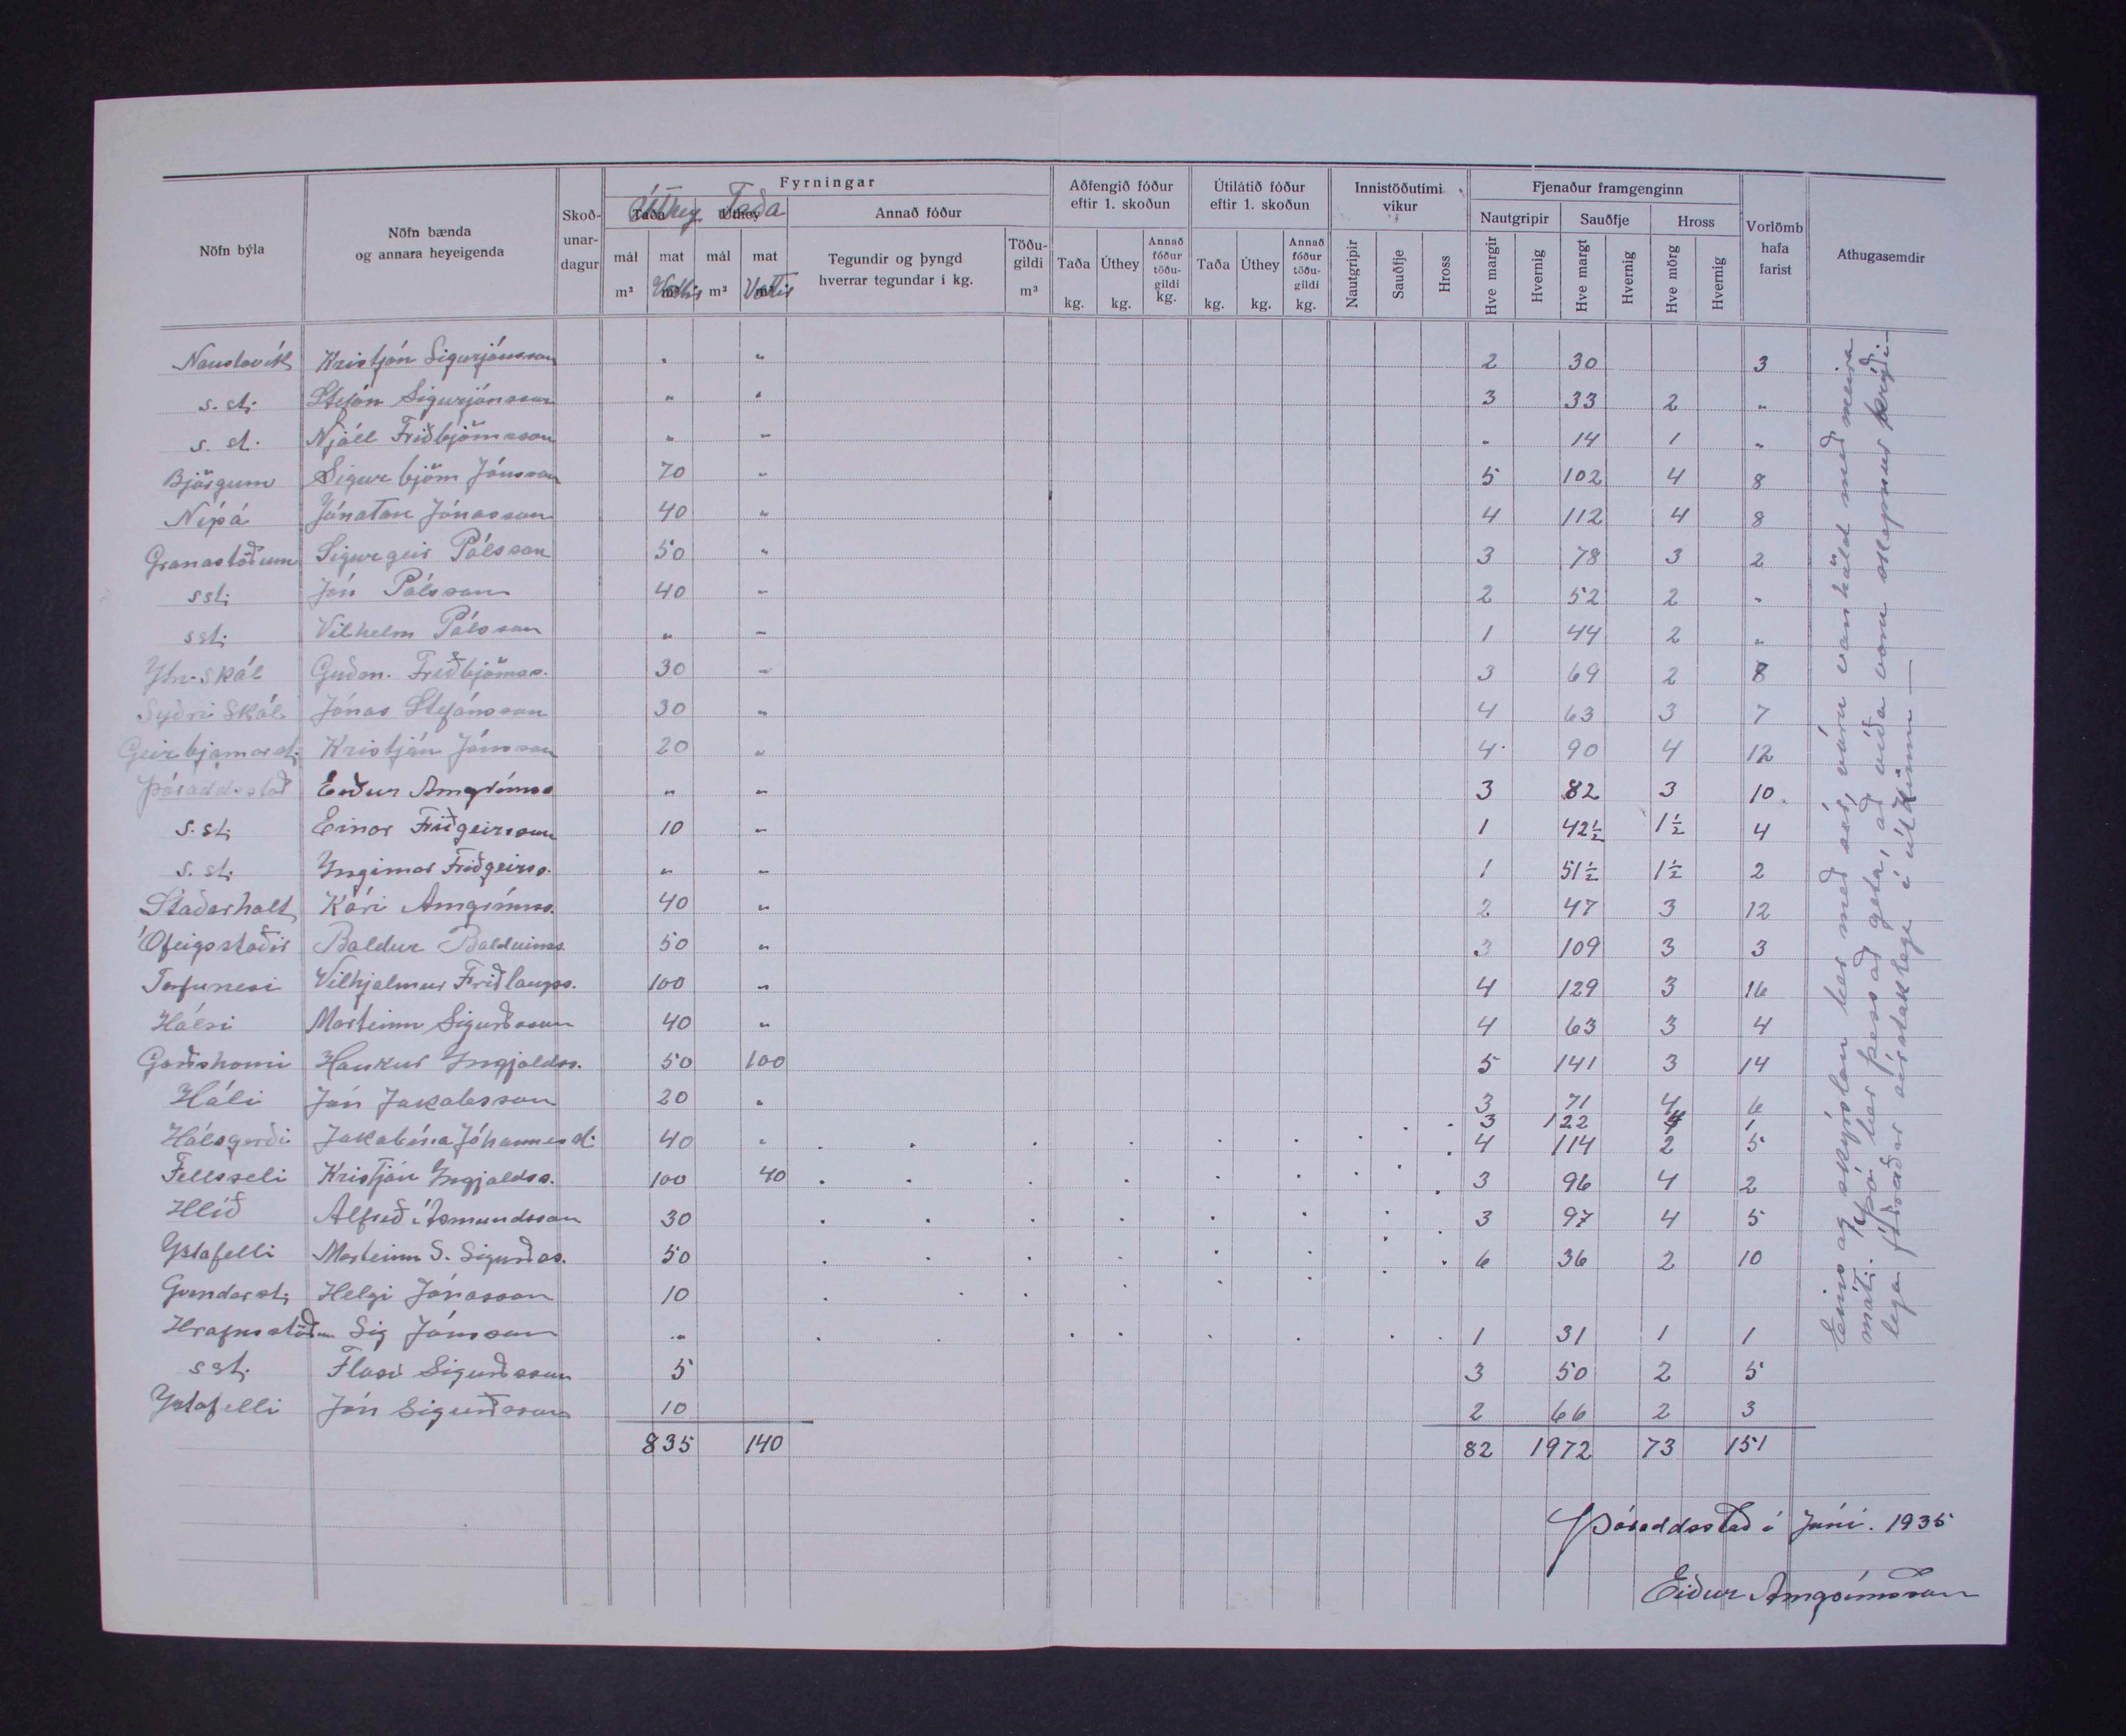 Fyrningar
Aðfengið fóður eftir 1. skoðun
Útilátið fóður eftir 1. skoðun
Innistöðutími vikur
Fjenaður framgenginn
Nöfn býla
Nöfn bænda og annara heyeigenda
Skoð-unar-dagur
Taða Úthey
Úthey Taða
Annað fóður
mál m³ mat m³ mál m³ mat m³
Tegundir og þyngd hverrar tegundar í kg.
Töðu-gildi m³
Taða kg. Úthey kg. Annað fóður töðu-gildi kg.
Taða kg. Úthey kg. Annað fóður töðu-gildi kg.
Nautgripir Sauðfje Hross
Nautgripir Sauðfje Hross
Hve margir Hvernig Hve margt Hvernig Hve mörg Hvernig
Vorlömb hafa farist
Athugasemdir
Naustavík Kristján Sigurjónsson " " 2 30 3
s. st. Stefán Sigurjónsson " " 3 33 2 "
s. st. Njáll Friðbjörnsson " " " 14 1 "
Björgum Sigurbjörn Jónsson 70 " 5 102 4 8
Nípá Jónatan Jónasson 40 " 4 112 4 8
Granastöðum Sigurgeir Pálsson 50 " 3 78 3 2
s st. Jón Pálsson 40 " 2 52 2 "
s st. Vilhelm Pálsson " " 1 44 2 "
Ytri-Skál Guðm. Friðbjörnss. 30 " 3 69 2 8
Syðri Skál Jónas Stefánsson 30 " 4 63 3 7
Geirbjarnarst. Kristján Jónsson 20 " 4 90 4 12
Þóroddsstað Eiður Arngrímss " " 3 82 3 10
s. st. Einar Friðgeirsson 10 " 1 42½ 1½ 4
s. st. Yngimar Friðgeirss. " " 1 51½ 1½ 2
Staðarholt Kári Arngrímss. 40 " 2 47 3 12
Ófeigsstaðir Baldur Baldvinss. 50 " 3 109 3 3
Torfunesi Vilhjalmur Friðlaugss. 100 " 4 129 3 16
Hálsi Marteinn Sigurðsson 40 " 4 63 3 4
Garðshorni Haukur Yngjaldss. 50 100 5 141 3 14
Háli Jón Jakobsson 20 " 3 71 4 6
3 122 4 1
Hálsgerði Jakobína Jóhannesd. 40 " 4 114 2 5
Fellsseli Kristján Yngjaldss. 100 40 3 96 4 2
Hlíð Alfreð Ásmundsson 30 3 97 4 5
Ystafelli Marteinn S. Sigurðss. 50 6 36 2 10
Gvendarst. Helgi Jónasson 10
Hrafnsstöðum Sig Jónsson " 1 31 1 1
s st. Flosi Sigurðsson 5 3 50 2 5
Ystafelli Jón Sigurðsson 10 2 66 2 3
835 140 82 1972 73 151
Eins og skýrslan ber með sér, voru vanhöld með meira
móti. Þó ber þess að geta, að víða voru skepnur prýði-
lega fóðraðar sérstaklega í útkinn —
Þóroddsstað í Júní. 1935
Eiður Arngrímsson